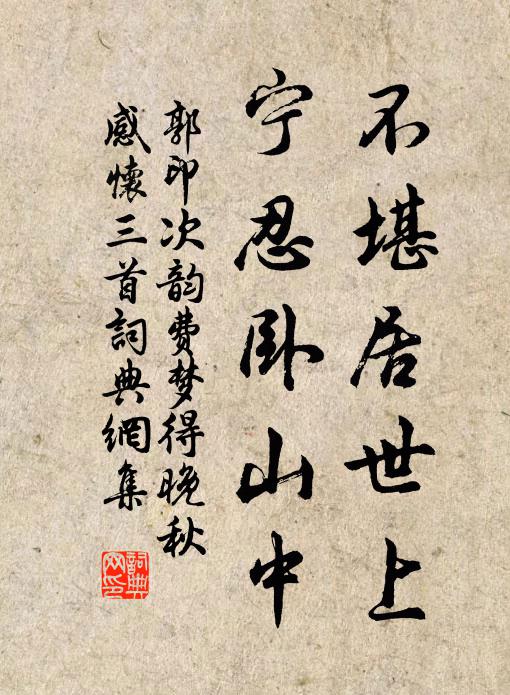 不堪居世上
宁忍卧山中
郭印次韵费梦得晚秋
感懷三首詞典網集
詞典网印